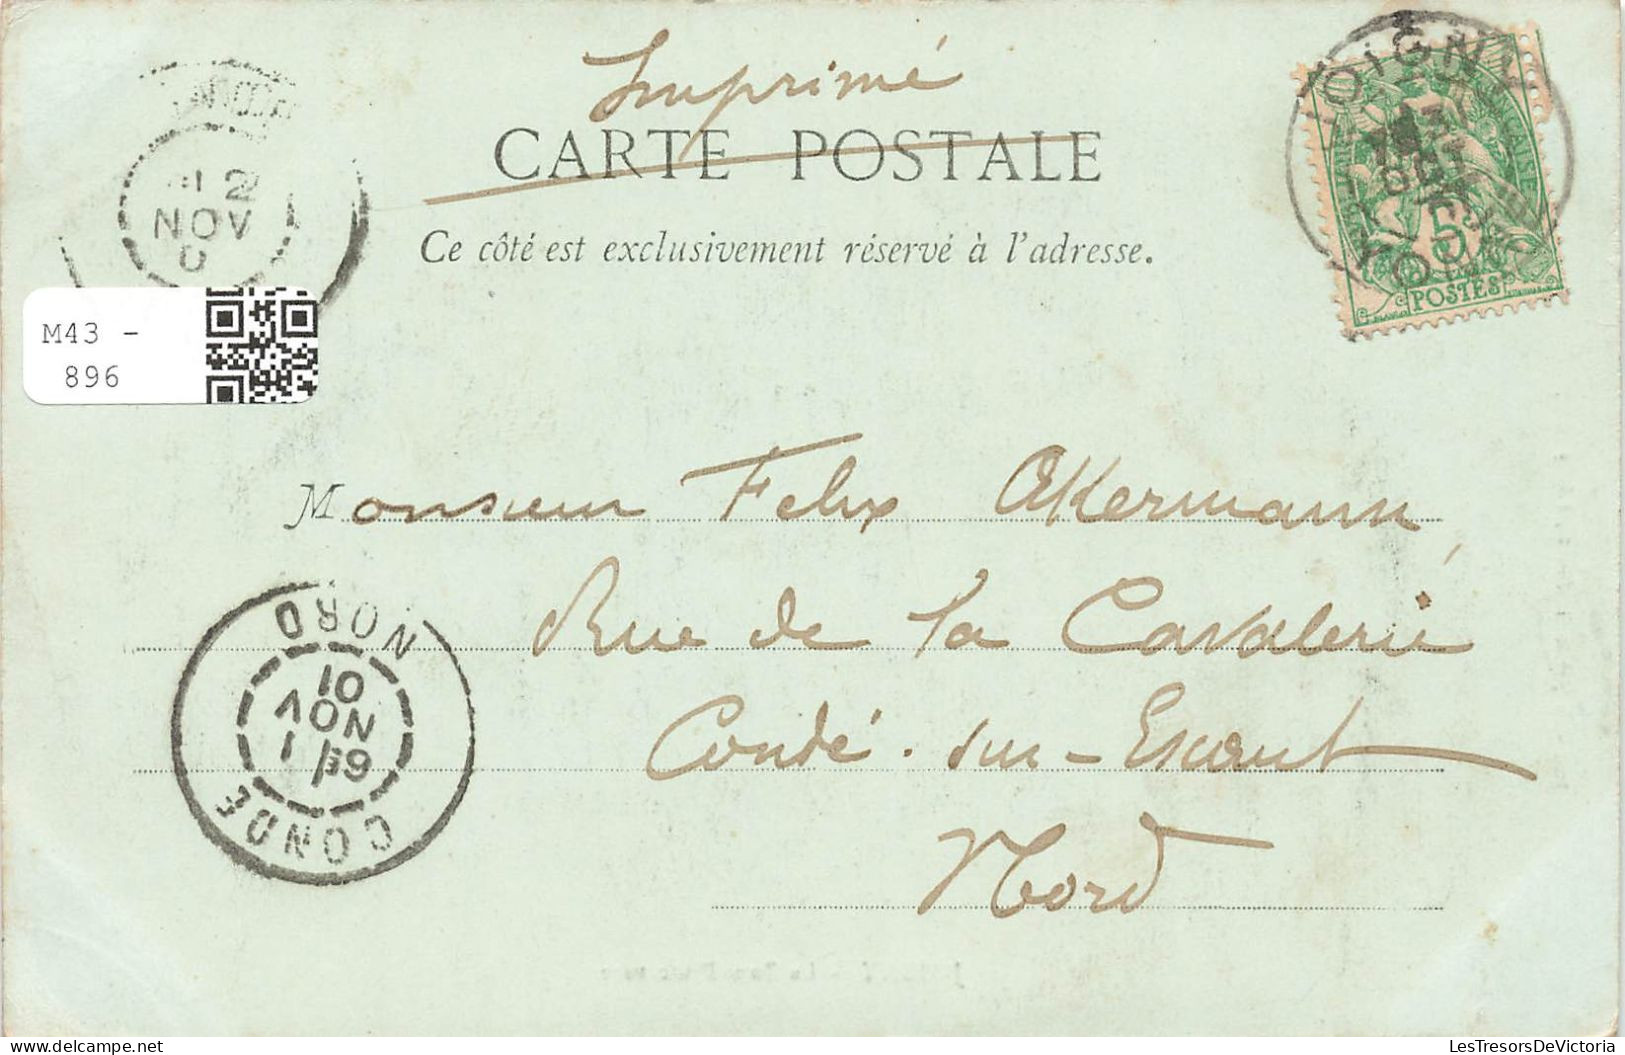 Imprimé
CARTE POSTALE
Ce côté est exclusivement réservé à l'adresse.
12
NOV
M43 -
896
5
POSTES
Monsieur Felix Akermann,
Rue de la Cavalerie
Condé-sur-Escaut
Nord
NORD
01
NOV
CONDE
LesTresorsDeVictoria